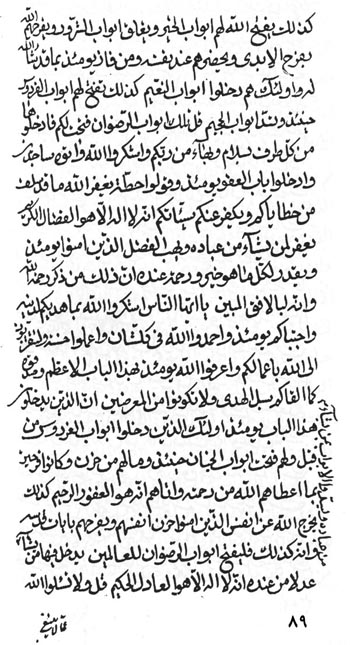 كذلك يفتح الله لهم ابواب الخير ويغلق ابواب الشرور ويفرحهم الله
بفرح الابدى ويحضرهم عند نفسه ومن فاز يومئذ بما قد شاء الله
له واولئك هم دخلوا ابواب النعيم كذلك تفتح لهم ابواب الفردوس
حينئذ وتسد ابواب الجحيم قل تلك ابواب الرضوان فتحت لكم فادخلوها
من كل طرف بسلام من ربكم واشكروا الله وانتم ساجدين
وادخلوا باب العفو يومئذ وقولوا حطة يغفر الله ما قد سلف
من خطاياكم ويكفر عنكم سيئاتكم انه لا اله الا هو الفضال الكريم
يغفر لمن يشاء من عباده ويهب الفضل الذين امنوا يومئذ
ويقدر لكل ما هو خير ورحمة عنده ان ذلك من ذكر رحمة الله
وانه لبالافق المبين يا ايها الناس اشكروا الله بما هديكم لدينه
واجتباكم يومئذ واحمدوا الله فى كلشأن واعملوا
الى الله باعمالكم واعرفوا الله يومئذ بهذا الباب الاعظم
كما القاكم سبل الهدى ولا تكونوا من المعرضين ان الذين يدخلون
هذا الباب يومئذ اولئك الذين دخلوا ابواب الفردوس من
قبل ولهم فتحت ابواب الجنان حينئذ وما لهم من حزن وكانوا فرحين
بما اعطاهم الله من رحمته واتاهم انه هو الغفور الرحيم كذلك
يفرج الله عن انفس الذين امنوا حزن انفسهم ويفرحهم بايات قدسه
وانه كذلك فليفتح ابواب الرضوان للعالمين يدخل فيها من يشاء
عدلا من عنده انه لا اله الا هو العادل الحكيم قل ولا تنسوا الله
٨٩
عما لا ينبغى